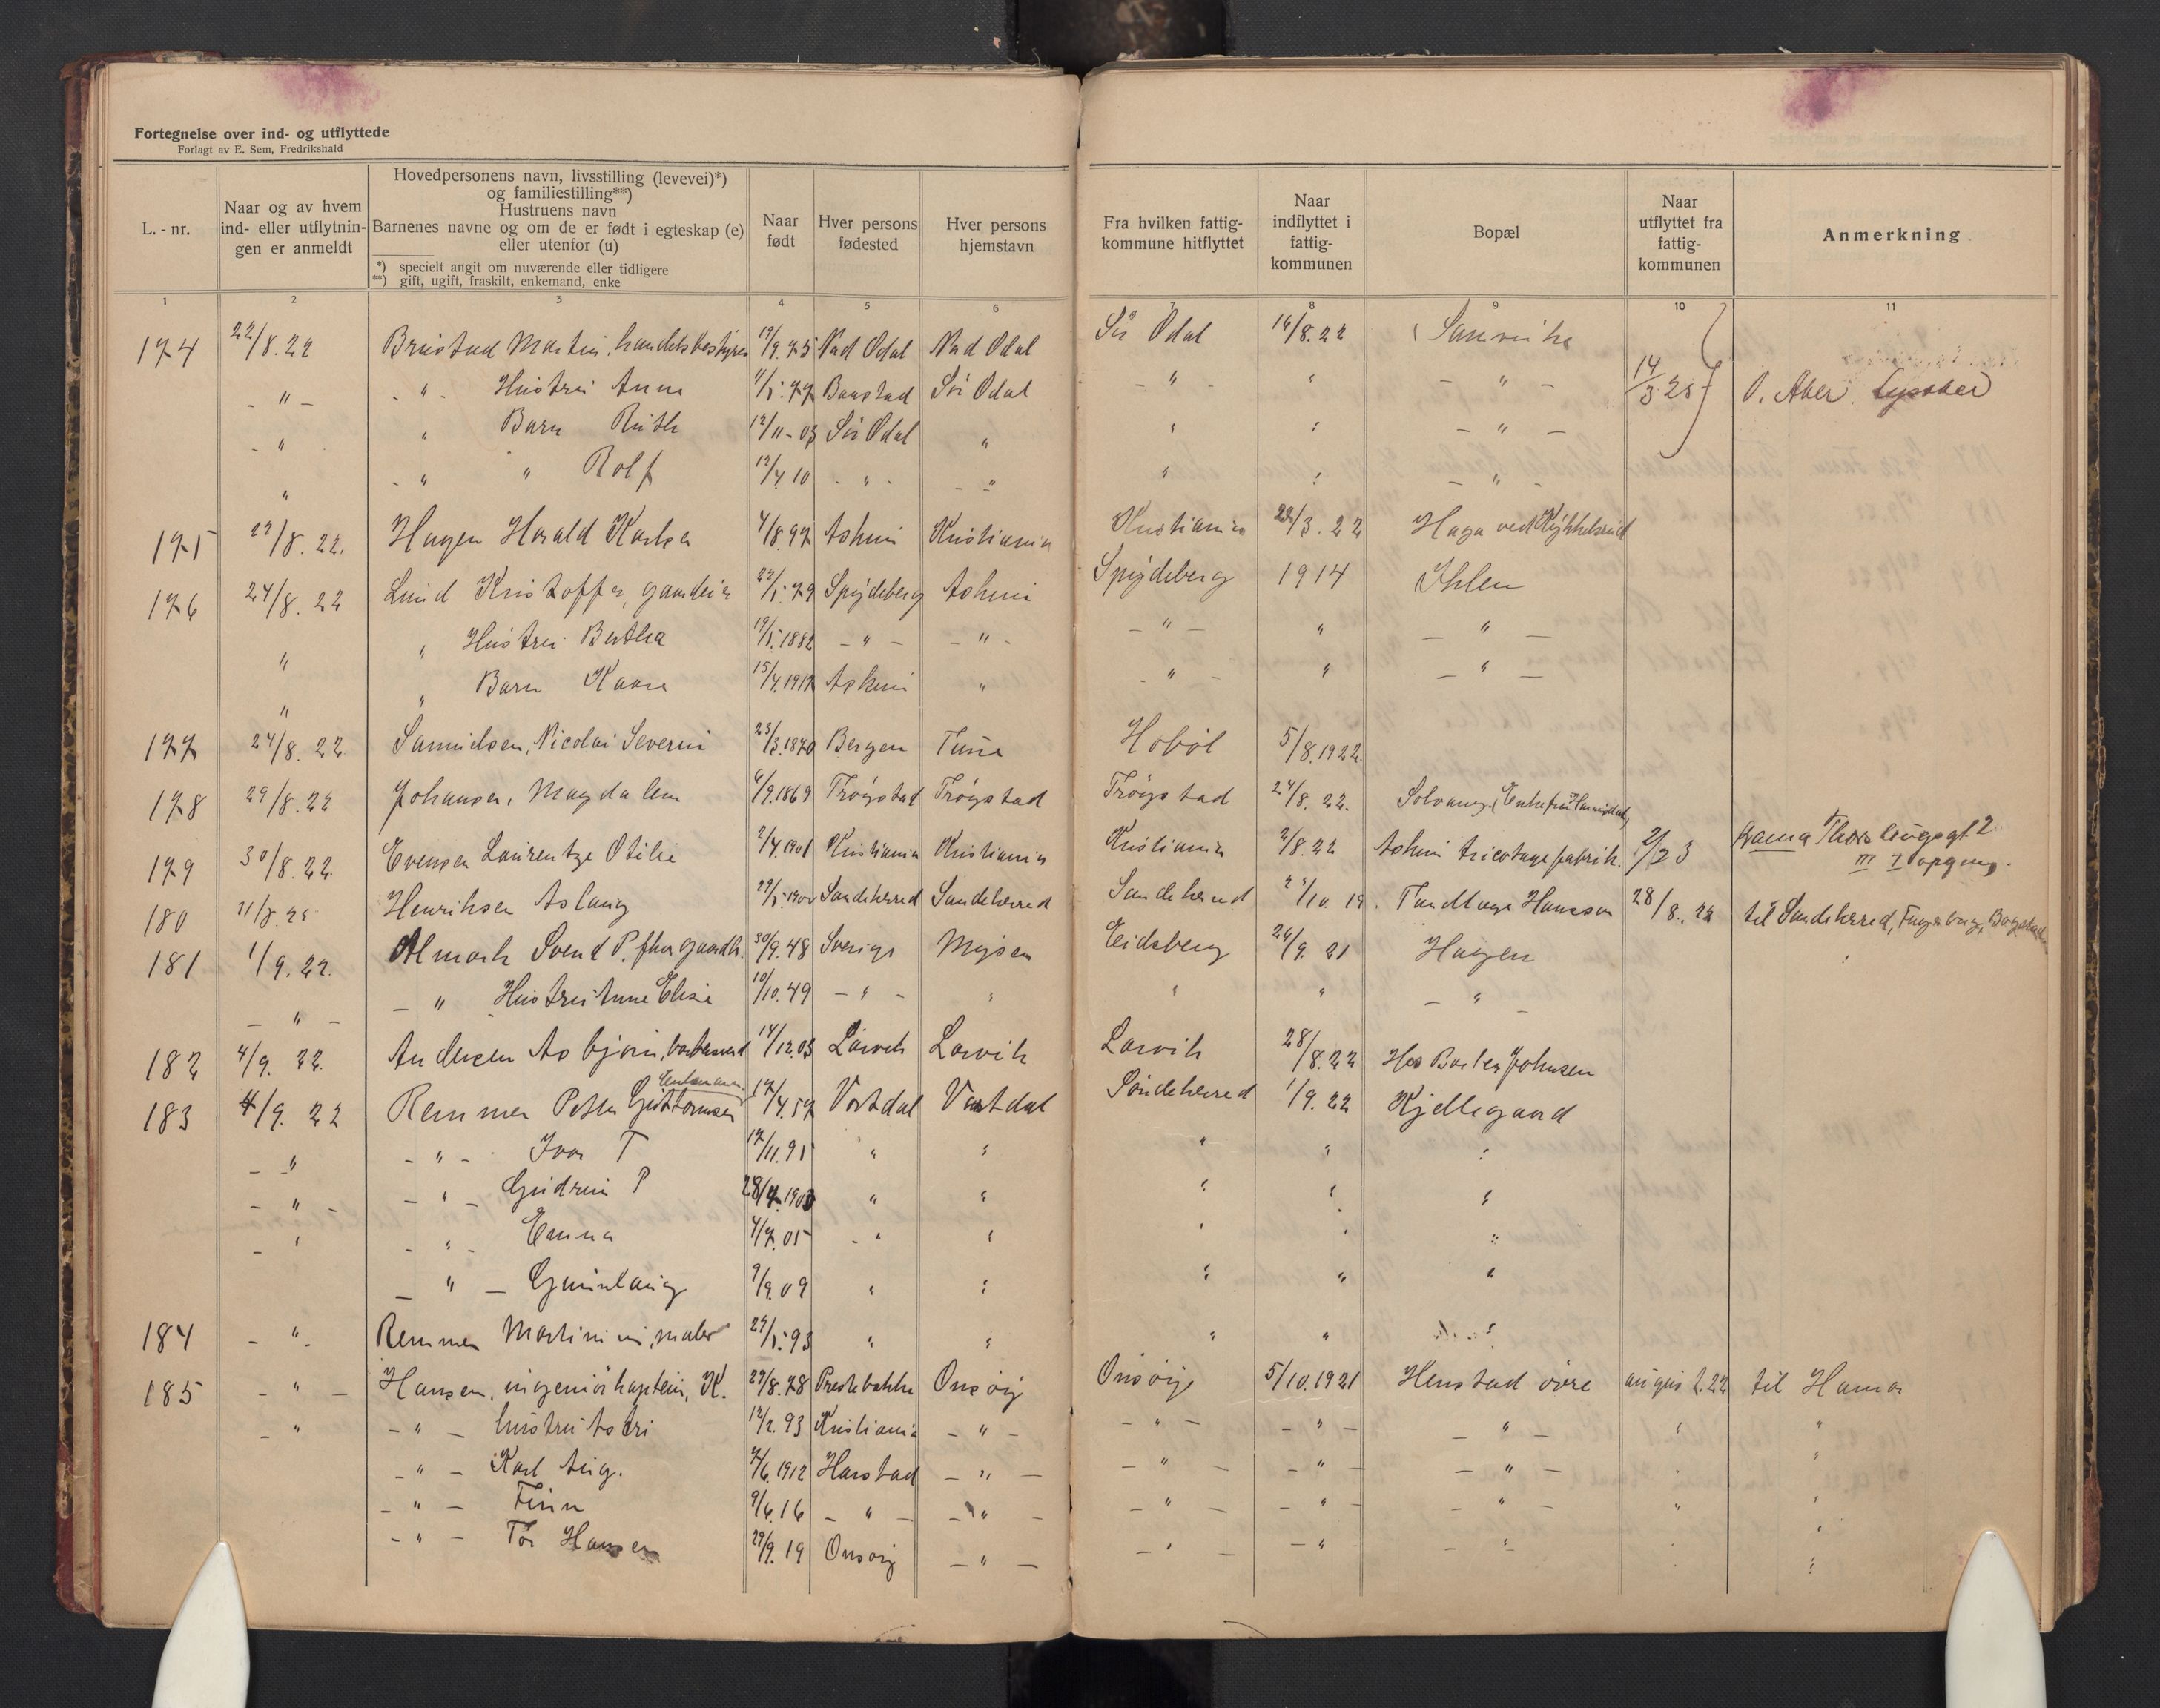 Fortegnelse over ind- og utflyttede
Forlagt av E. Sem, Fredrikshald
L.-nr. | Naar og av hvem ind- eller utflytningen er anmeldt | Hovedpersonens navn, livsstilling (levevei)*) og familiestilling**) Hustruens navn Barnenes navne og om de er født i egteskap (e) eller utenfor (u) *) specielt angit om nuværende eller tidligere **) gift, ugift, fraskilt, enkemand, enke | Naar født | Hver persons fødested | Hver persons hjemstavn | Fra hvilken fattigkommune hitflyttet | Naar indflyttet i fattigkommunen | Bopæl | Naar utflyttet fra fattigkommunen | Anmerkning
1 2 3 4 5 6 7 8 9 10 11
174 22/8.22 Brustad Martin, handelsbestyrer 19/9.75 Nord Odal Nord Odal Sör Odal 16/8.22 Sanvika
- " - - " - Hustru Anna 11/5.77 Baastad Sör Odal - " - " - " - 14/3 25 O. Aker
- " " Barn Ruth 12/11-03 Sör Odal " " " - " -
" - " " Rolf 12/4 10 - " - - " " " - " -
175 22/8.22. Hagen Harald Karlsen 4/8.97 Askim Kristiania Kristiania 22/3.22 Haga ved Kykkelsrud
176 24/8.22 Lund Kristoffer, gaardeier 22/5.79 Spydeberg Askim Spydeberg 1914 Ihlen
" " Hustru Bertha 19/5.1882 - " - - " - - " - " - " -
" " Barn Kaare 15/4.1917 Askim " - " - " - " -
177 24/8.22 Samuelsen, Nicolai Severin 23/3.1870 Bergen Tune Hobøl 5/8.1922.
178 29/8.22 Johansen, Magdalene 6/9.1869 Trögstad Trögstad Trögstad 24/8.22. Solvang
179 30/8.22. Evensen Laurentze Otilie 2/4.1901 Kristiania Kristiania Kristiania 2/8.22 Askim tricotagefabrik. 2/23
III I opgang.
180 31/8.22 Henriksen Aslaug 29/5.1900 Sandeherred Sandeherred Sandeherred /10.19. Tandlæge Hansson 28/8.22 til Sandeherred,
181 1/9.22. Almark Svend P. fhv gaardbr. 30/9.48 Sverige Mysen Eidsberg 24/9.21 Hagen
- " - - " Hustru Anne Elise 10/10.49 - " - " " " - " -
182 4/9.22. Andersen Asbjörn, barbersvend 14/12.03 Larvik Larvik Larvik 28/8.22 Hos Barber Johnsen
183 4/9.22 Remmen Peter Guttormsen Enkemann 17/4.57 Vartdal Vartdal Sandeherred 1/9.22 Kjellegaard
- " - " - Ivar P 17/11.95 " " " " "
- " - - " - Gudrun P 28/4.1903 " " " " "
- " - " - Emma 4/7.05 - " " " " "
- " - Gunnlaug 9/9.09 " " " " "
184 - " - Remmen Martinius, maler 24/5.93 " " " " "
185 - " - Hansen, ingeniörkaptein, K. 29/8.78 Prestebakke Onsöy Onsöy 5/10.1921 Henstad övre august.22 til Hamar
- " - " - hustru Astri 12/2.93 Kristiania - " - - " - - " - - " - " "
- " - Karl Aug. 7/6.1912 Harstad - " - - " - - " - - " - "
- " - Finn 9/6.16 - " - - " - - " - - " - - " - " "
- " - Tor Hansen 29/9.19 Onsöy - " - - " - - " - " - "